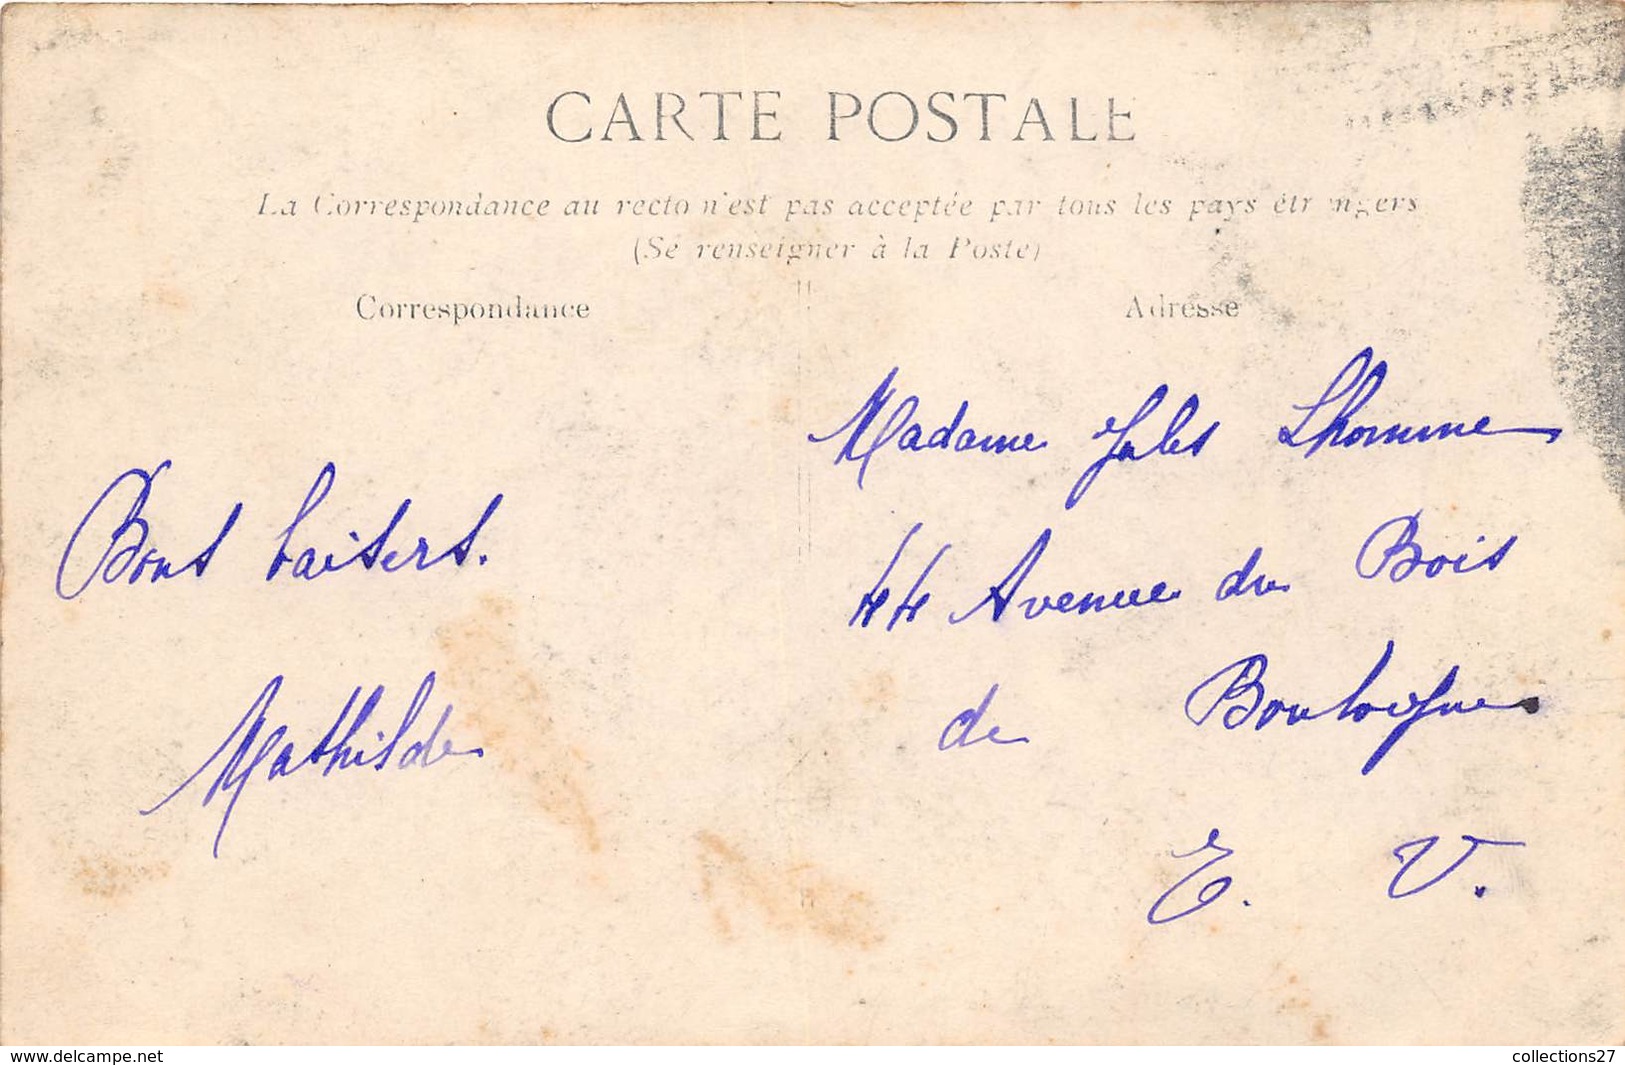 CARTE POSTALE
La Correspondance au recto n'est pas acceptée par tous les pays étrangers
(Se renseigner à la Poste)
Correspondance
Adresse
Bons baisers.
Mathilde
Madame Jules Lhomme
44 Avenue du Bois
de Boulogne
E. V.
www.delcampe.net
collections27